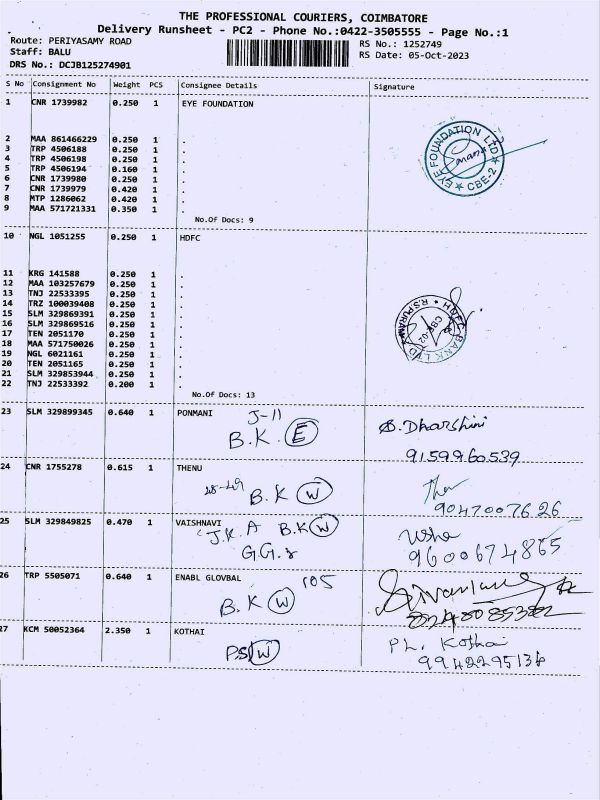 THE PROFESSIONAL COURIERS, COIMBATORE
Delivery Runsheet - PC2 - Phone No.:0422-3505555 - Page No.:1
Route: PERIYASAMY ROAD
RS No.: 1252749
Staff: BALU
RS Date: 05-Oct-2023
DRS No.: DCJB125274901
S No Consignment No Weight PCS Consignee Details Signature
1 CNR 1739982 0.250 1 EYE FOUNDATION
2 MAA 861466229 0.250 1 .
3 TRP 4506188 0.250 1 .
4 TRP 4506198 0.250 1 .
5 TRP 4506194 0.160 1 .
6 CNR 1739980 0.250 1 .
7 CNR 1739979 0.420 1 .
8 MTP 1286062 0.420 1 .
9 MAA 571721331 0.350 1 .
EYE FOUNDATION LTD ★ CBE-2 ★
No.Of Docs: 9
10 NGL 1051255 0.250 1 HDFC
11 KRG 141588 0.250 1 .
12 MAA 103257679 0.250 1 .
13 TNJ 22533395 0.250 1 .
14 TRZ 100039408 0.250 1 .
15 SLM 329869391 0.250 1 .
16 SLM 329869516 0.250 1 .
17 TEN 2051170 0.250 1 .
18 MAA 571750026 0.250 1 .
19 NGL 6021161 0.250 1 .
20 TEN 2051165 0.250 1 .
21 SLM 329853944 0.250 1 .
22 TNJ 22533392 0.200 1 .
HDFC BANK LTD R.S.PURAM CBE-02
No.Of Docs: 13
23 SLM 329899345 0.640 1 PONMANI J-11
B.K. E
S.Dharshini
9159960539
24 CNR 1755278 0.615 1 THENU
B.K W
9047007626
25 SLM 329849825 0.470 1 VAISHNAVI
J.K.A B.K W
Usha
9600674865
26 TRP 5505071 0.640 1 ENABL GLOVBAL 105
B.K W
27 KCM 50052364 2.350 1 KOTHAI
PS W
PL. Kothai
9942295136